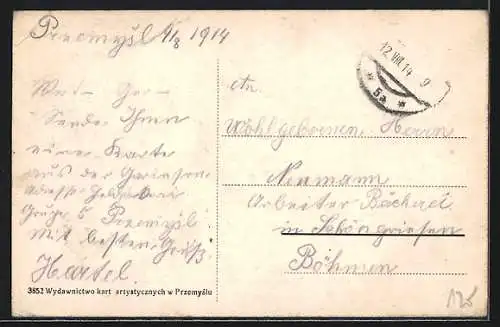 Przemyśl 9/8 1914
Wert- Ger-
Sende Ihnen
eine Karte
aus der Garnison
Adresse Feldpost
Gruppe 5 Przemyśl.
Mit besten Gruß
Hartel.
3852 Wydawnictwo kart artystycznych w Przemyślu
12.VIII.14 9
* 5a *
An
Wohlgeborenen Herrn
Neumann
Arbeiter Bäckerei
in Schöngriesen
Böhmen